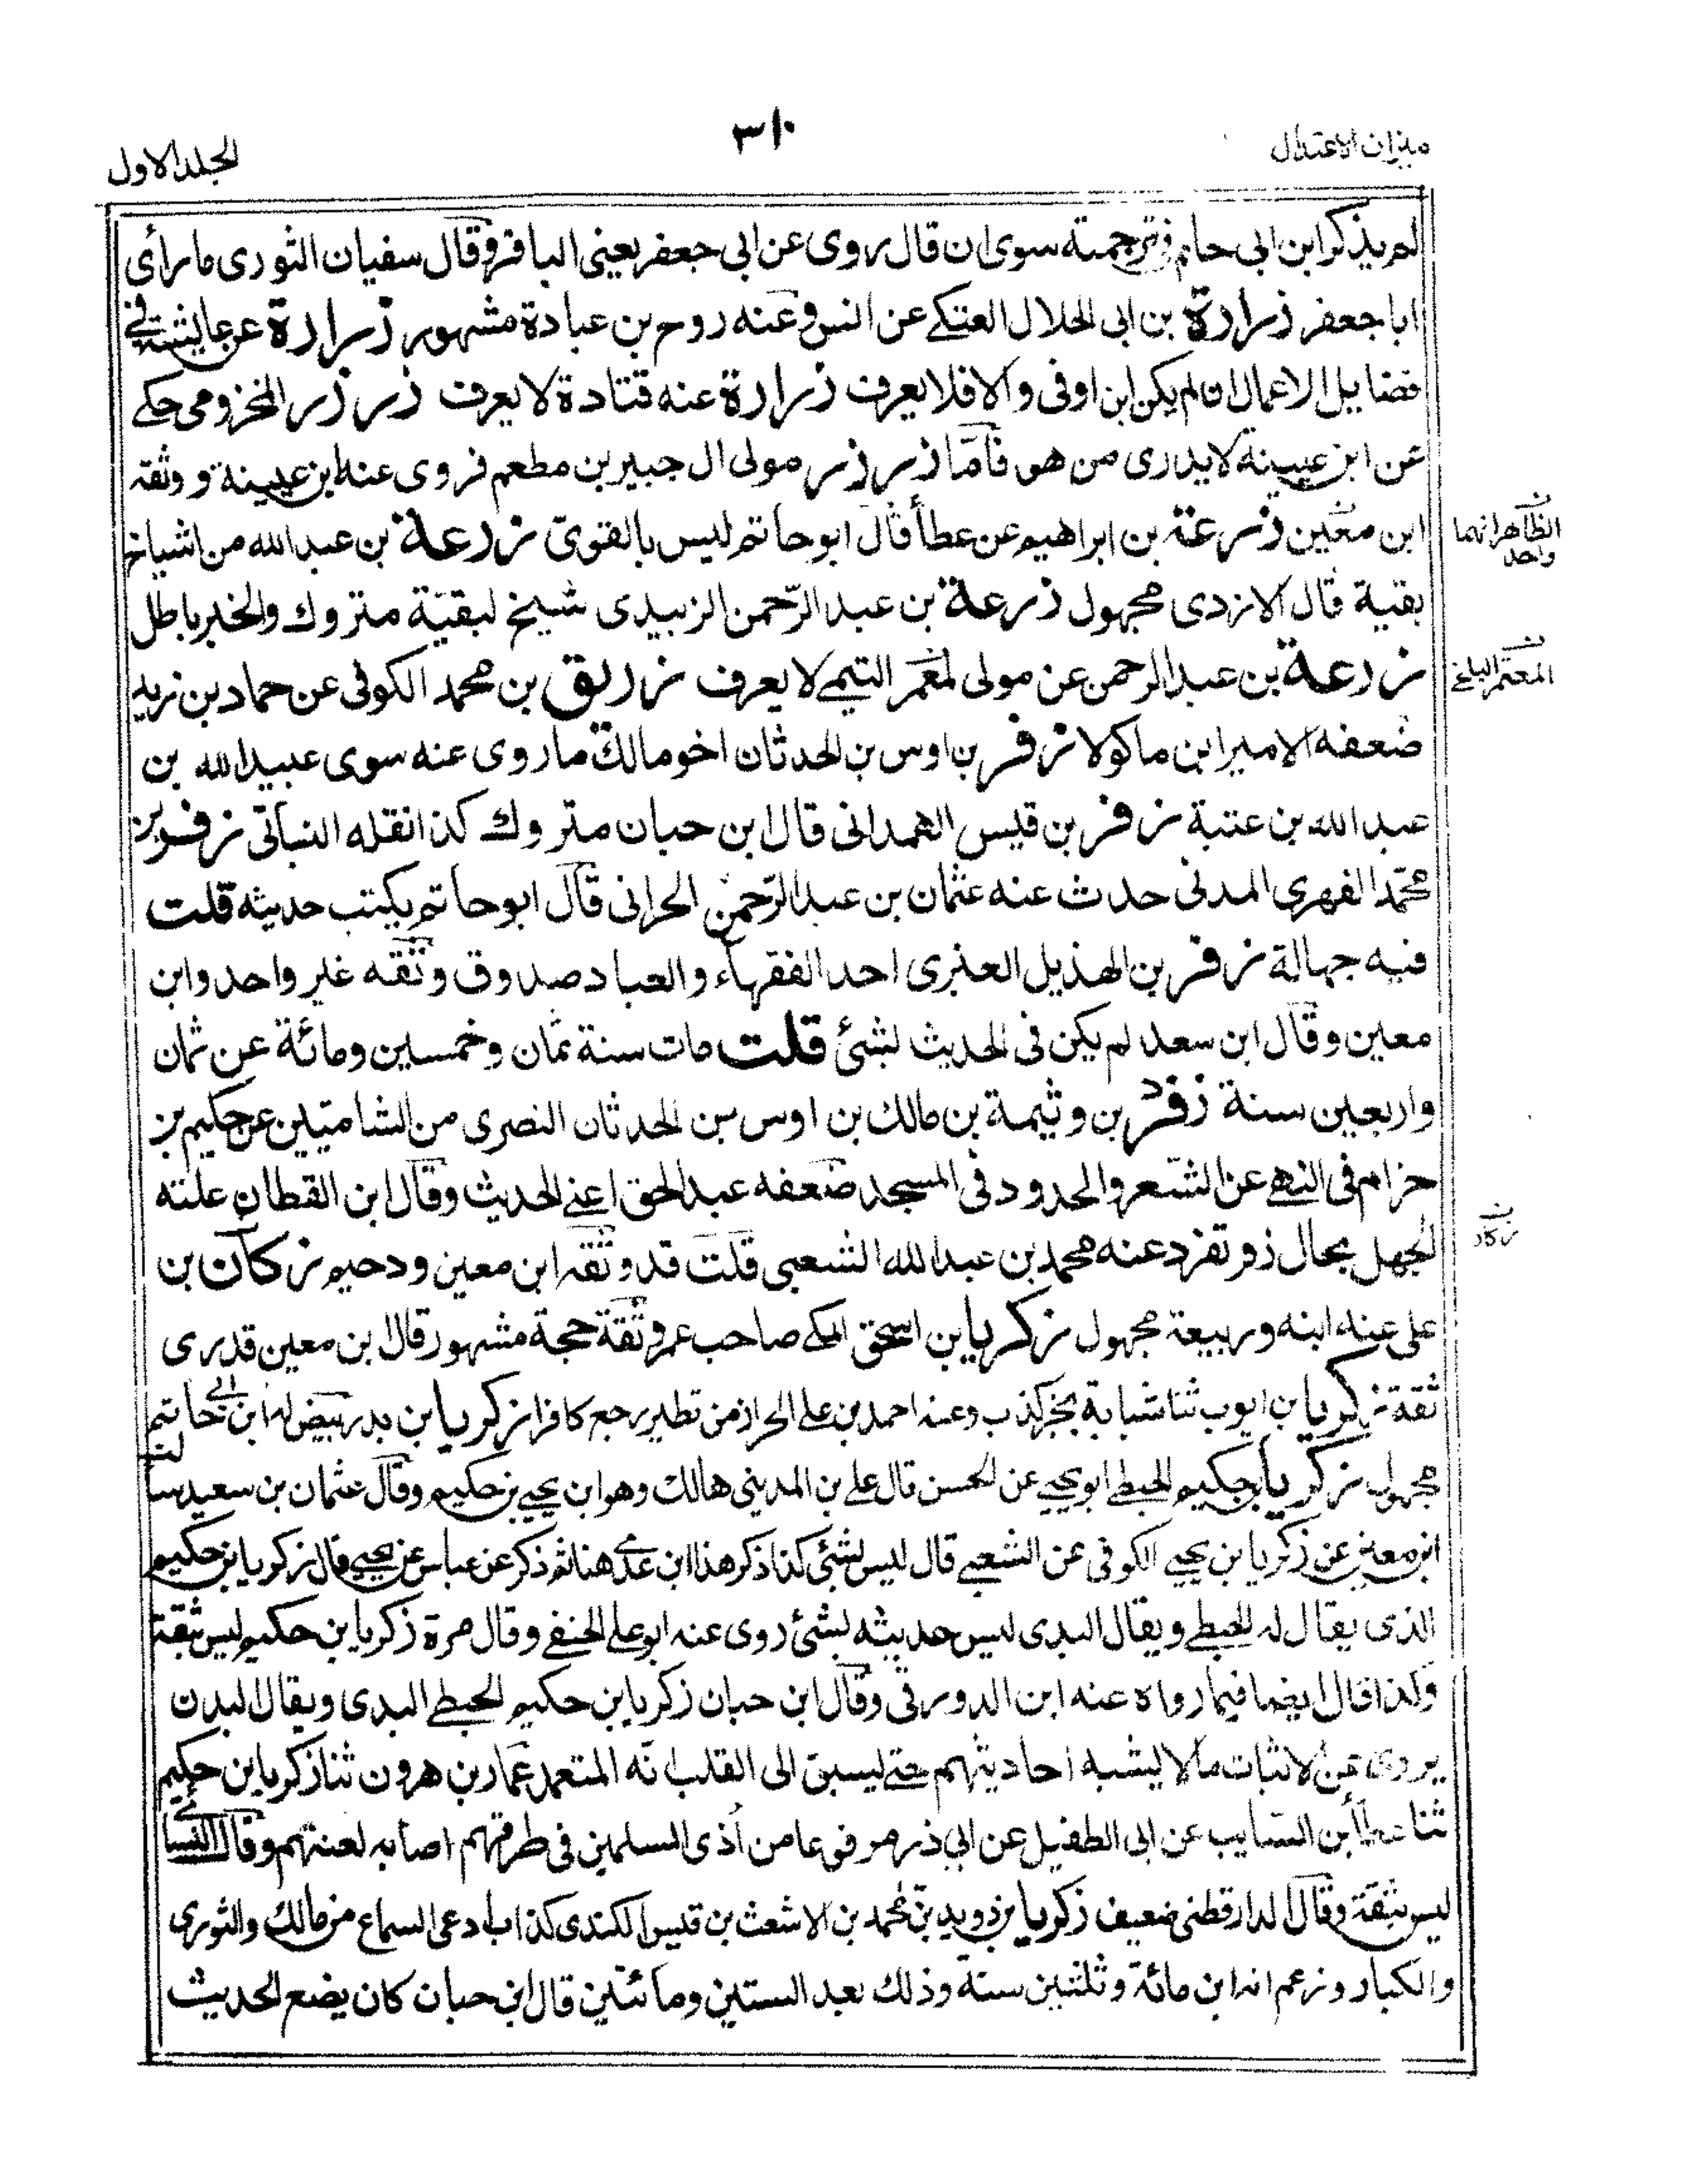 ميزان الاعتدال
٣١٠
الجلد الاول
لم يذكر ابن ابى حاتم فى ترجمته سوى ان قال روى عن ابى جعفر يعنى الباقر وقال سفيان الثورى ما رأى
ابا جعفر زرارة بن ابى الحلال العتكے عن انس وعنه روح بن عبادة مشهور زرارة عن عايشة فى
فضايل الاعمال ان لم يكن ابن اوفى والا فلا يعرف زرارة عنه قتادة لا يعرف زرزر المخزومى حكے
عن ابن عيينة لا يدرى من هو فأما زرزر مولى ال جبير بن مطعم فروى عنه ابن عيينة ووثقه
ابن معين زرعة بن ابراهيم عن عطأ قال ابو حاتم ليس بالقوىّ زرعة بن عبد الله من اشياخ
الظاهر انهما واحد
بقية قال الازدى مجهول زرعة بن عبد الرّحمن الزبيدى شيخ لبقيّة متروك والخبر باطل
زرعة بن عبد الرحمن عن مولى لمعمر التيمے لا يعرف زريق بن محمد الكوفى عن حماد بن زيد
ضعفه الامير ابن ماكولا زفر بن اوس بن الحدثان اخو مالك ما روى عنه سوى عبيد الله بن
عبد الله بن عتبة زفر بن قيس الهمدانى قال ابن حبان متروك كذا نقله النباتى زفر بن
محمّد الفهرى المدنى حدث عنه عثمان بن عبد الرّحمن الحرانى قال ابو حاتم يكتب حديثه قلت
فيه جهالة زفر بن الهذيل العنبرى احد الفقهاء والعباد صدوق وثقه غير واحد وابن
معين وقال ابن سعد لم يكن فى الحديث لبشئ قلت مات سنة ثمان وخمسين ومائة عن ثمان
واربعين سنة زفر بن وثيمة بن مالك بن اوس بن الحدثان النصرى من الشاميّين عن حكيم بن
حزام فى النهے عن الشعر والحدود فى المسجد ضعفه عبد الحق اعنے الحديث وقال ابن القطان علته
الجهل بحال زفر تفرد عنه محمد بن عبد الله الشعبى قلت قد وثقه ابن معين ودحيم زكان بن
على عنه ابنه وربيعة مجهول زكريا بن اسحق المكے صاحب عمرو ثقة حجة مشهور قال ابن معين قدرى
ثقة زكريا بن ايوب ثنا شبابة بخبر كذب وعنه احمد بن علے الحراز من تطير رجع كافرا زكريا بن بدر بيض له ابن ابى حاتم
مجهول زكريا بن حكيم الحبطے ابو يحيے عن الحسن قال علے بن المدينى هالك وهو ابن يحيے بن حكيم وقال عثمان بن سعيد سألت
ابن معين عن زكريا بن يحيے الكوفى عن الشعبے قال ليس بشئ كذا ذكر هذا ابن عدى هنا ثم ذكر عن عباس عن يحيے قال زكريا بن حكيم
الذى يقال له الحبطے ويقال البدى ليس حديثه بشئ روى عنه ابو علے الحنفے وقال مرة زكريا بن حكيم ليس بثقة
وكذا قال ايضا فيما رواه عنه ابن الدورقى وقال ابن حبان زكريا بن حكيم الحبطے البدى ويقال البدن
يروى عن الاثبات مالا يشبه احاديثهم حتے يسبق الى القلب انّه المتعمد عمار بن هرون ثنا زكريا بن حكيم
ثنا عطأ بن السّايب عن ابى الطفيل عن ابى ذر مرفوعا من أذى المسلمين فى طرقهم اصابه لعنتهم وقال النسائى
ليس بثقة وقال الدارقطنى ضعيف زكريا بن دويد بن محمد بن الاشعث بن قيس الكندى كذاب ادعى السماع من مالك والثورى
والكبار وزعم انه ابن مائة وثلثين سنة وذلك بعد الستين ومائتين قال ابن حبان كان يضع الحديث